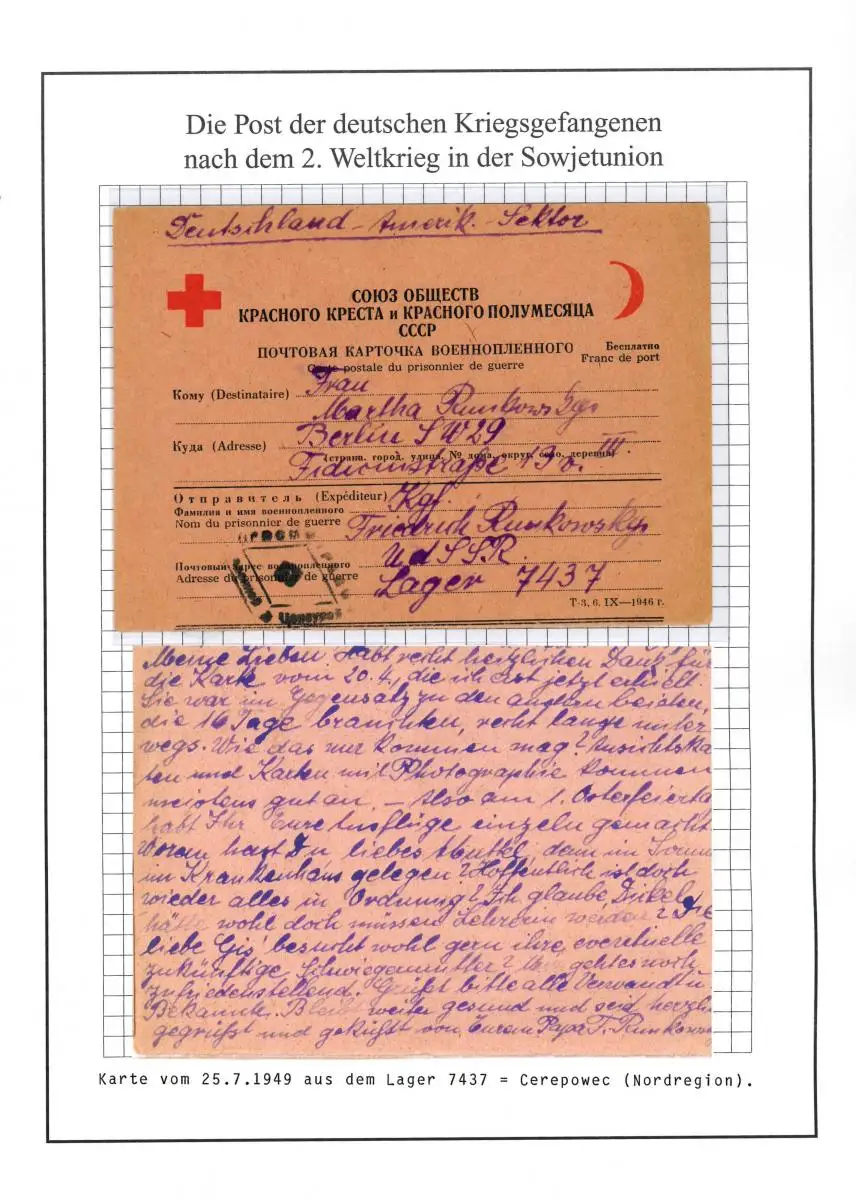 Die Post der deutschen Kriegsgefangenen
nach dem 2. Weltkrieg in der Sowjetunion
Deutschland - Amerik. - Sektor
СОЮЗ ОБЩЕСТВ
КРАСНОГО КРЕСТА и КРАСНОГО ПОЛУМЕСЯЦА
СССР
ПОЧТОВАЯ КАРТОЧКА ВОЕННОПЛЕННОГО
Бесплатно
Carte postale du prisonnier de guerre
Franc de port
Кому (Destinataire) Frau
Martha
Куда (Adresse) Berlin SW29
(страна, город, улица, № дома, округ, село, деревня)
19 III
Отправитель (Expéditeur) Kgf.
Фамилия и имя военнопленного
Nom du prisonnier de guerre Friedrich
Почтовый адрес военнопленного UdSSR
Adresse du prisonnier de guerre Lager 7437
Т-3, 6. IX—1946 г.
Meine Lieben! Habt recht herzlichen Dank für
die Karte vom 20.4., die ich erst jetzt erhielt.
Sie war im Gegensatz zu den andern beiden,
die 16 Tage brauchten, recht lange unter
wegs. Wie das nur kommen mag? Ansichtska
ten und Karten mit Photographie kommen
meistens gut an. - Also am 1. Osterfeierta
habt Ihr Eure Ausflüge einzeln gemacht.
Woran hast Du liebes Muttel, denn im
im Krankenhaus gelegen? Hoffentlich ist doch
wieder alles in Ordnung? Ich glaube,
hätte wohl doch müssen Lehrerin werden? Die
liebe besucht wohl gern ihre eventuelle
zukünftige Schwiegermutter? Mir geht es noch
zufriedenstellend. Grüßt bitte alle Verwandt u.
Bekannte. Bleibt weiter gesund und seid herzli
gegrüßt und geküßt von Eurem Papa
Karte vom 25.7.1949 aus dem Lager 7437 = Cerepowec (Nordregion).